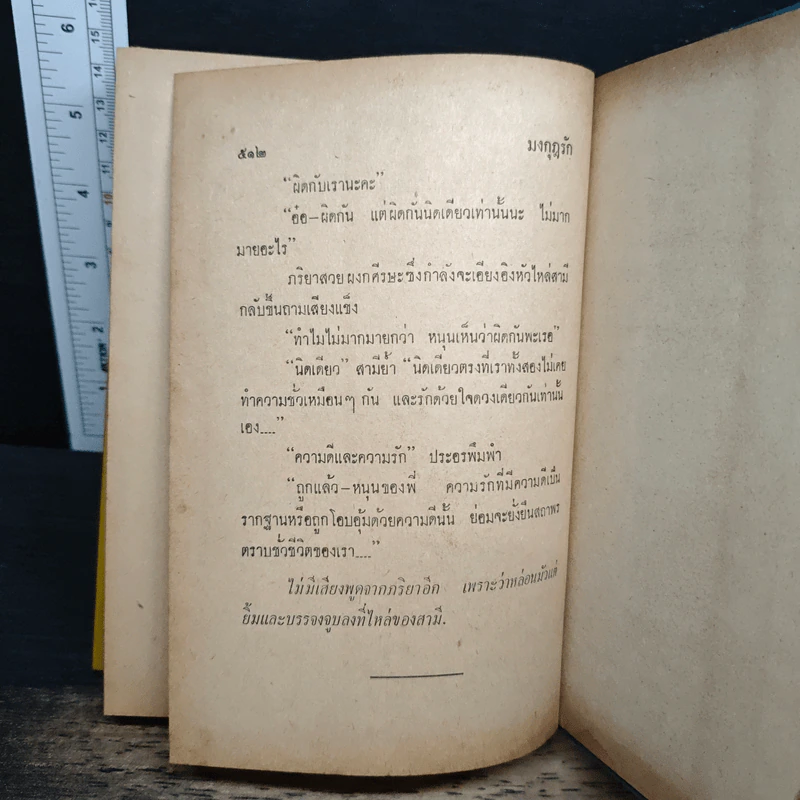 ๕๑๒ มงกุฎรัก
“ผิดกับเรานะคะ”
“อ๋อ—ผิดกัน แต่ผิดกันนิดเดียวเท่านั้นนะ ไม่มาก
มายอะไร”
ภริยาสวยผงกศีรษะซึ่งกำลังจะเอียงอิงหัวไหล่สามี
กลับขึ้นถามเสียงแข็ง
“ทำไมไม่มากมายกว่า หนุนเห็นว่าผิดกันพะเรอ”
“นิดเดียว” สามีย้ำ “นิดเดียวตรงที่เราทั้งสองไม่เคย
ทำความชั่วเหมือนๆ กัน และรักด้วยใจดวงเดียวกันเท่านั้น
เอง....”
“ความดีและความรัก” ประอรพึมพำ
“ถูกแล้ว—หนุนของพี่ ความรักที่มีความดีเป็น
รากฐานหรือถูกโอบอุ้มด้วยความดีนั้น ย่อมจะยั่งยืนสถาพร
ตราบชั่วชีวิตของเรา....”
ไม่มีเสียงพูดจากภริยาอีก เพราะว่าหล่อนมัวแต่
ยิ้มและบรรจงจูบลงที่ไหล่ของสามี.
6
5
4
3
2
15
14
13
12
11
10
9
8
7
6